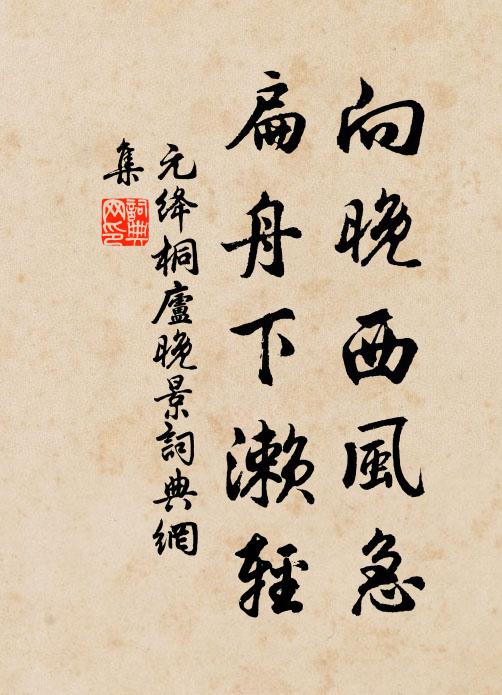 向晚西風急
扁舟下瀨輕
元絳桐廬晚景詞典網
集
詞典網印